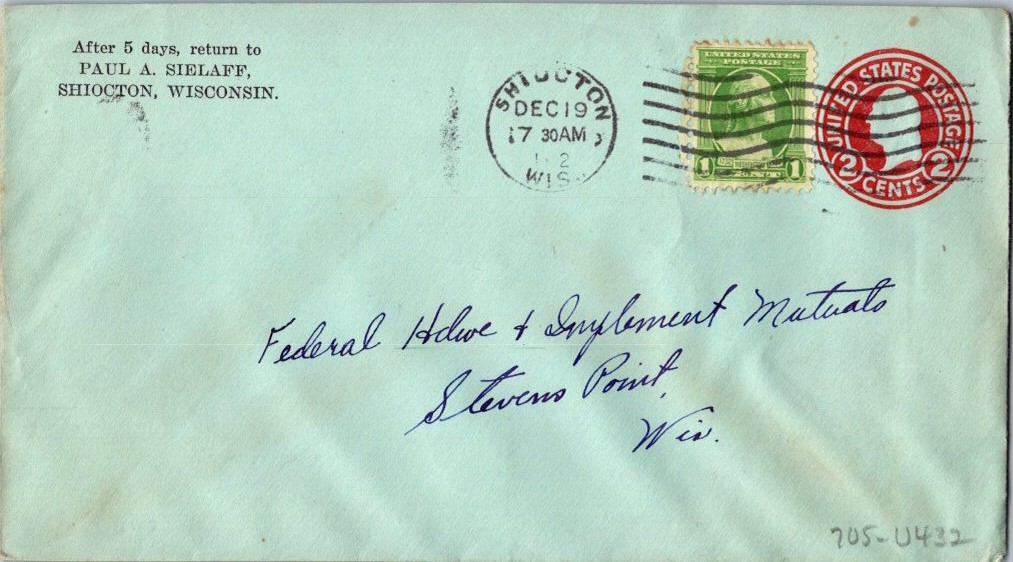 After 5 days, return to
PAUL A. SIELAFF,
SHIOCTON, WISCONSIN.
SHIOCTON
DEC 19
7 30AM
WIS.
UNITED STATES
POSTAGE
1 1
UNITED STATES POSTAGE
2 CENTS 2
Federal Hdwe & Implement Mutuals
Stevens Point,
Wis.
705-U432